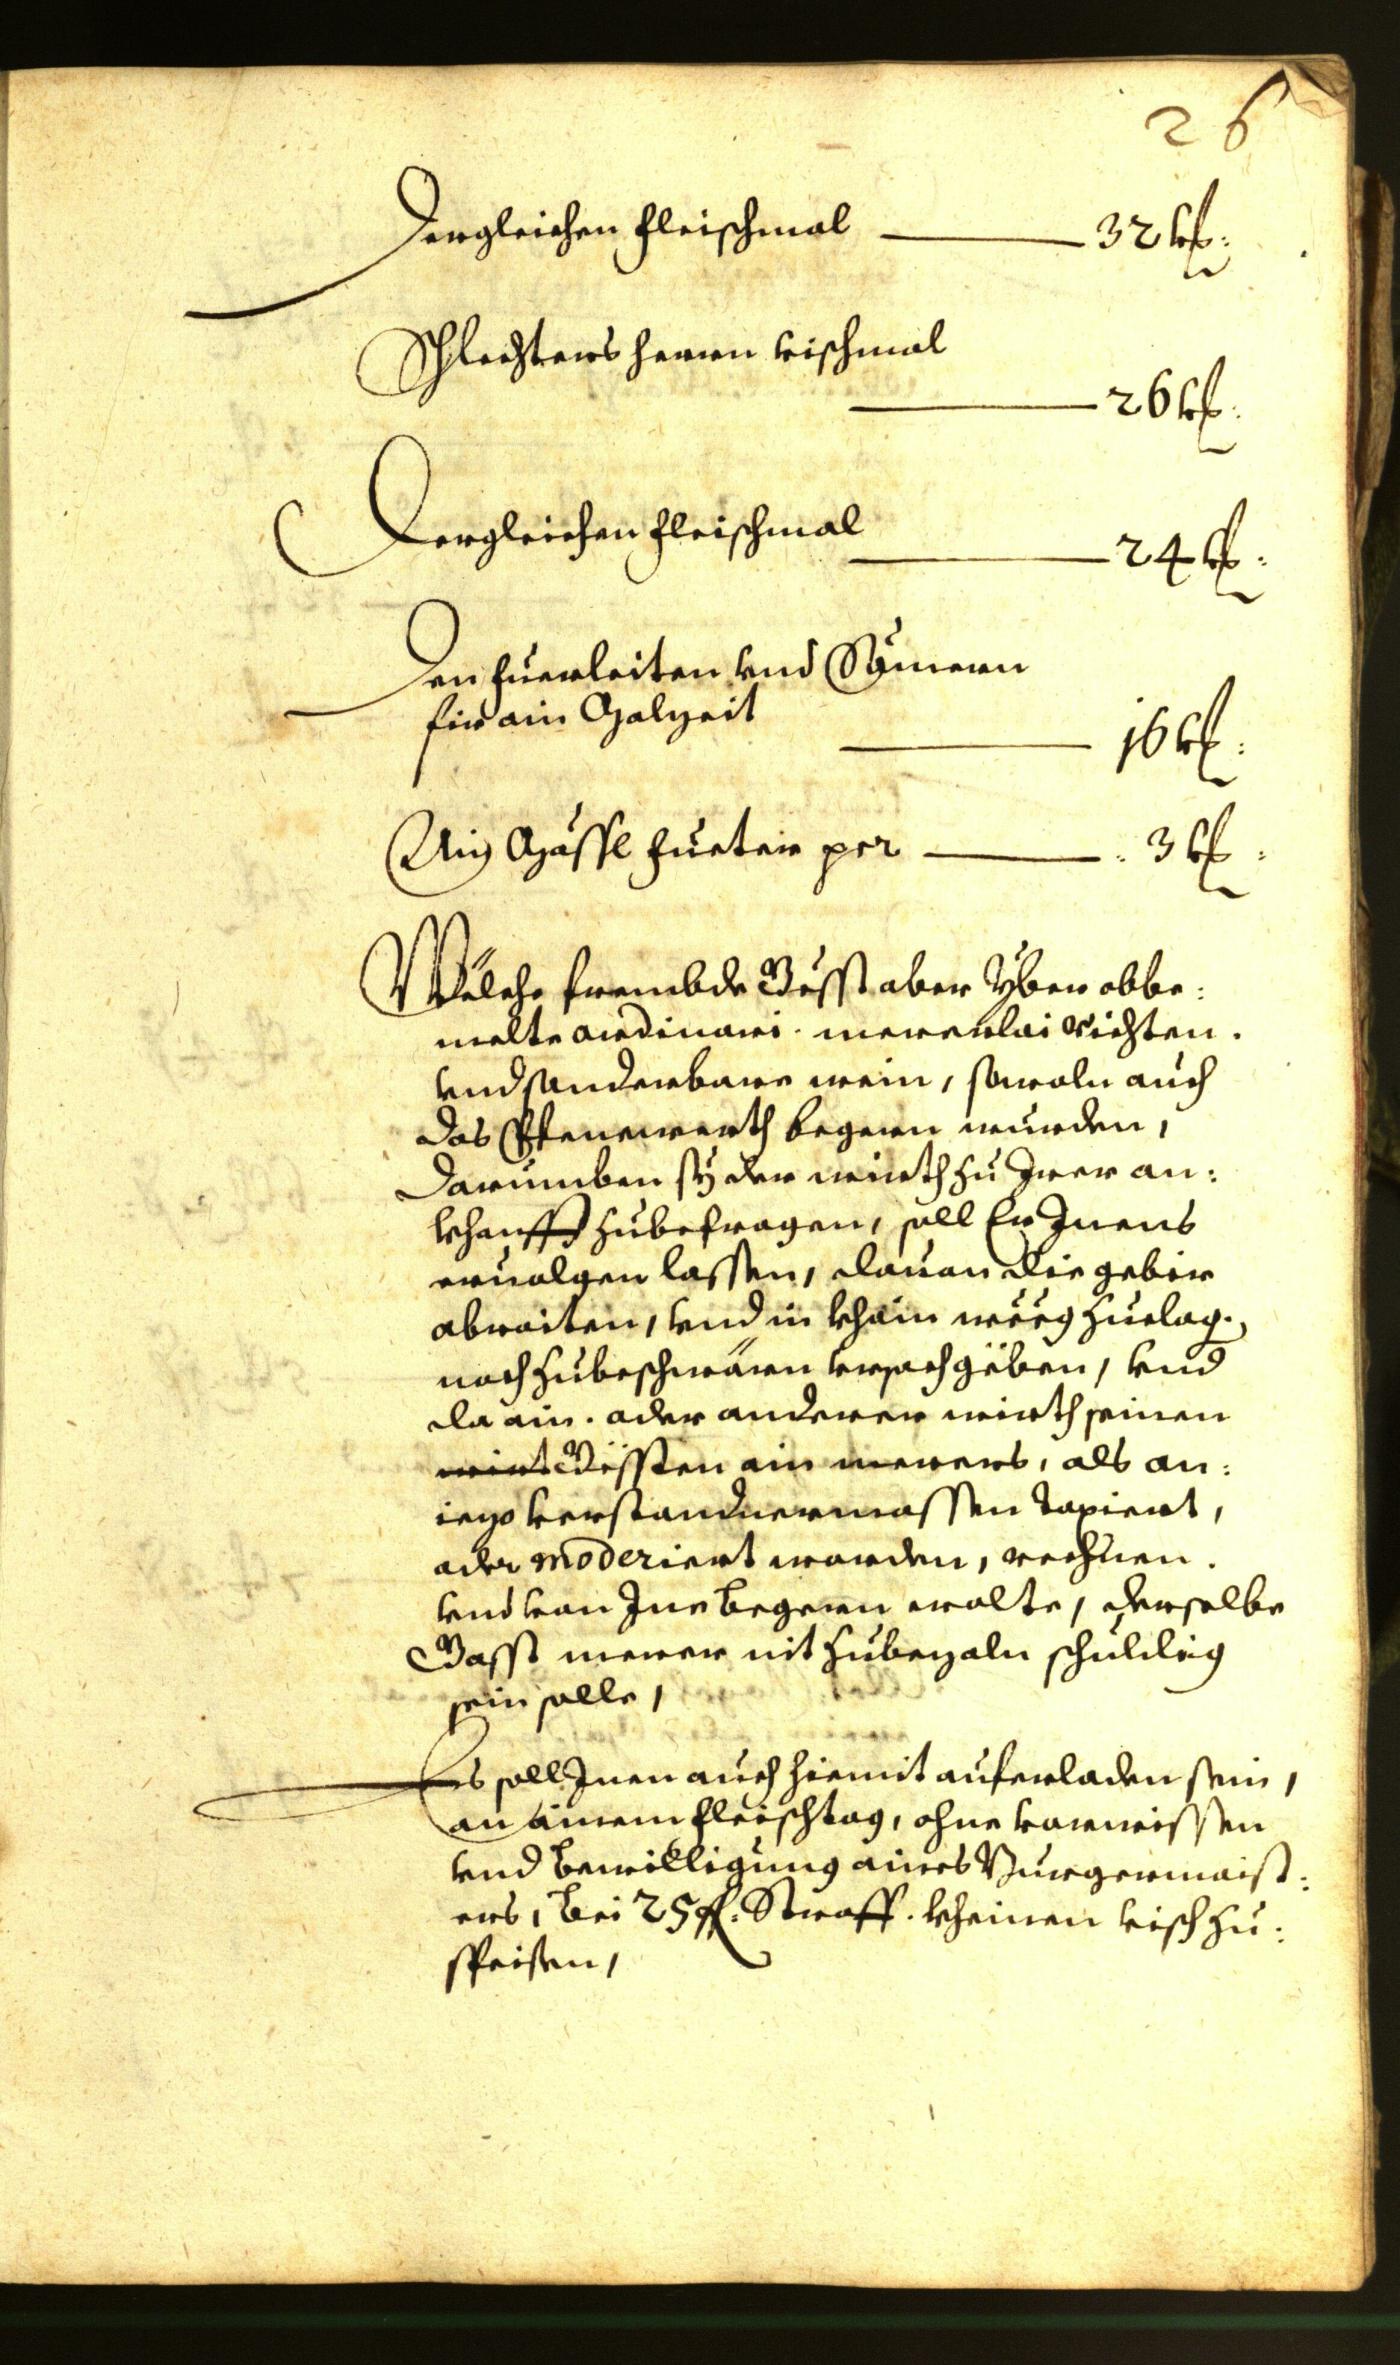 26
Dergleichen Fleischmal 32 kr:
Schlechters herrn vischmal
26 kr:
Dergleichen Fleischmal
24 kr:
Den Fuerleiten vnd Sämern
fir ain Malzeit
16 kr:
Ain Mässl Fueter per 3 kr:
Wëlche frembde Gësst aber yber obbe:
melte ordinari mererlai Richten.
vnd sonderbare wein, sowoln auch
das Pfenewerth begern wurden,
darumben sy der wirth zu Irer an:
khonfft zubefragen, soll Er Inens
eruolgen lassen, dauon die gebir
abraiten, vnd in khain weeg zuelag.,
noch zubeschwärn vrsach gëben, vnd
da ain. oder anderer wirth seinen
wirt Gëssten ain merers, als an:
iezo verstandnermassen taxiert,
oder moderiert worden, rechnen.
vnd von Ine begern wolte, derselbe
Gasst merer nit zubezaln schuldig
sein solle,
Es soll Inen auch hiemit auferladen sein,
an ainem Fleischtag, ohne vorwissen
vnd bewilligung aines Burgermaist:
ers, bei 25 fl: Straff. kheinen visch zu:
speisen,